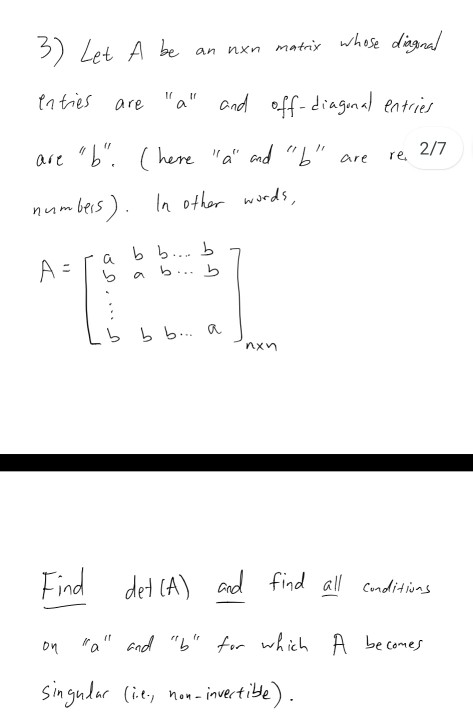 3) Let A be an nxn matrix whose diagonal
entries are "a" and off-diagonal entries
are "b". (here "a" and "b" are re
2/7
numbers). In other words,
A = [ a b b ... b
b a b ... b
⋮
b b b ... a ] nxn
Find det(A) and find all conditions
on "a" and "b" for which A becomes
singular (i.e., non-invertible).